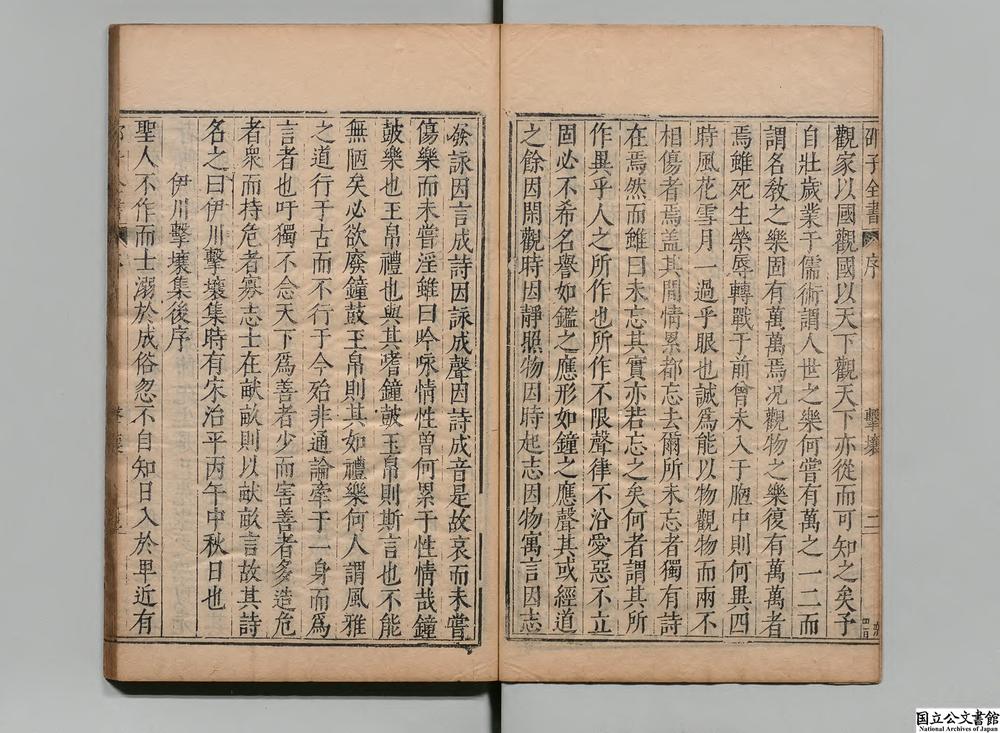 邵子全書 序 擊壤 二
觀家以國觀國以天下觀天下亦從而可知之矣予
自壯歲業于儒術謂人世之樂何嘗有萬之一二而
謂名教之樂固有萬萬焉况觀物之樂復有萬萬者
焉雖死生榮辱轉戰于前曾未入于胷中則何異四
時風花雪月一過乎眼也誠爲能以物觀物而兩不
相傷者焉盖其間情累都忘去爾所未忘者獨有詩
在焉然而雖曰未忘其實亦若忘之矣何者謂其所
作異乎人之所作也所作不限聲律不沿愛惡不立
固必不希名譽如鑑之應形如鐘之應聲其或經道
之餘因閑觀時因靜照物因時起志因物寓言因志
發詠因言成詩因詠成聲因詩成音是故哀而未嘗
傷樂而未嘗淫雖曰吟咏情性曾何累于性情哉鐘
鼓樂也玉帛禮也與其嗜鐘鼓玉帛則斯言也不能
無陋矣必欲廢鐘鼓玉帛則其如禮樂何人謂風雅
之道行于古而不行于今殆非通論牽于一身而爲
言者也吁獨不念天下爲善者少而害善者多造危
者衆而持危者寡志士在畎畝則以畎畝言故其詩
名之曰伊川擊壤集時有宋治平丙午中秋日也
伊川擊壤集後序
聖人不作而士溺於成俗忽不自知日入於卑近有
国立公文書館
National Archives of Japan